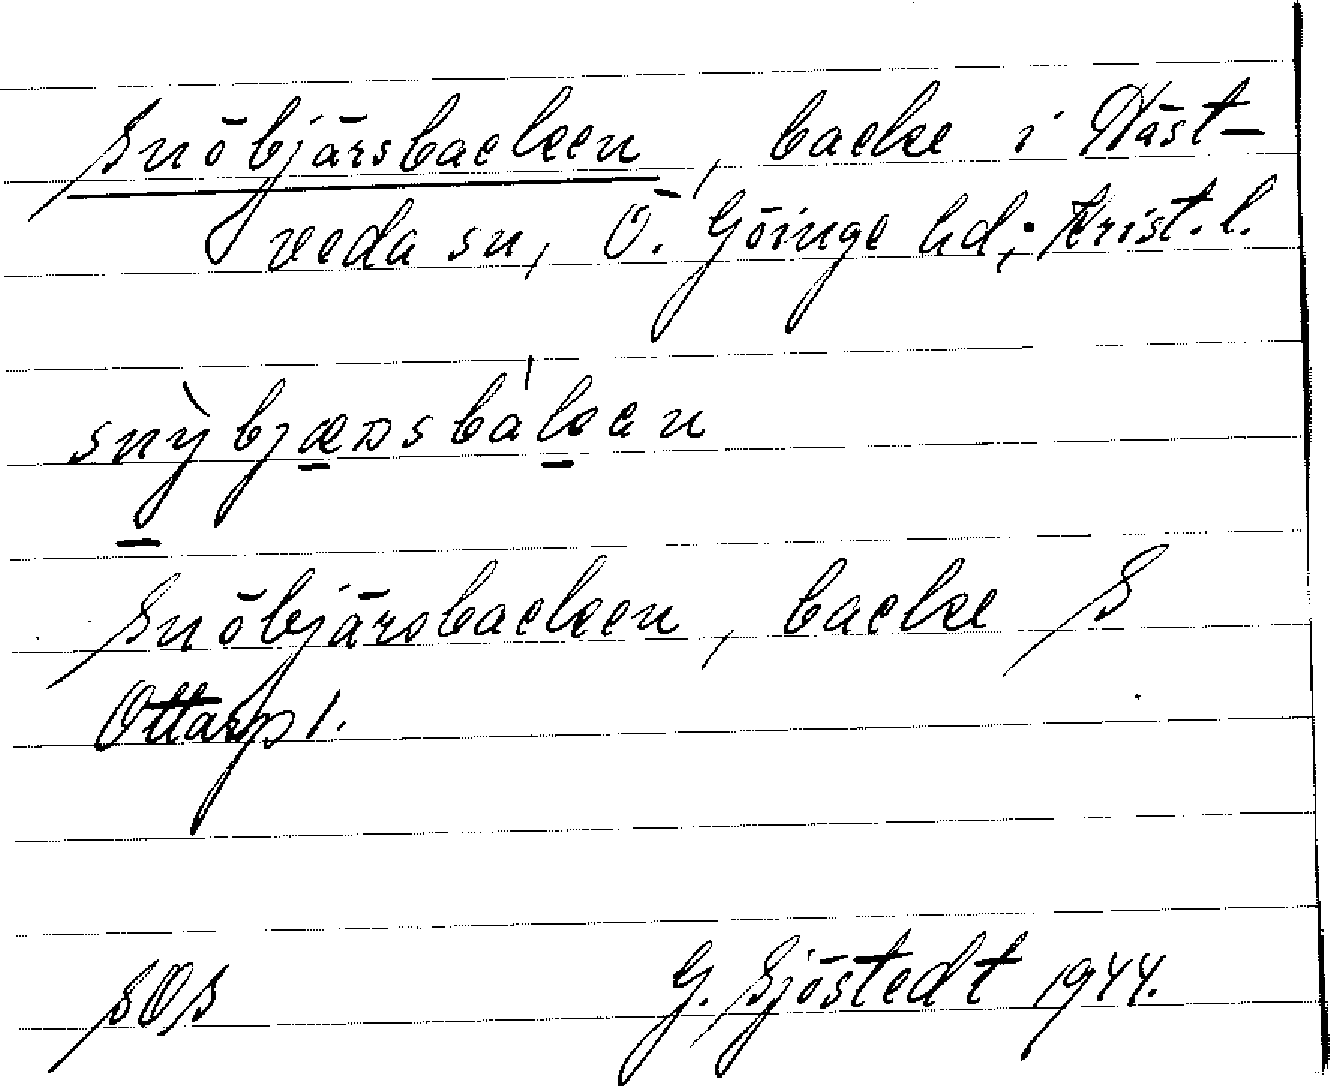 Snöbjärsbacken, backe i Häst-
veda sn, Ö. Göinge hd; Krist. l.
snỳbjæʀsbakan
Snöbjärsbacken, backe S
Ottarp 1.
SOS G. Sjöstedt 1944.